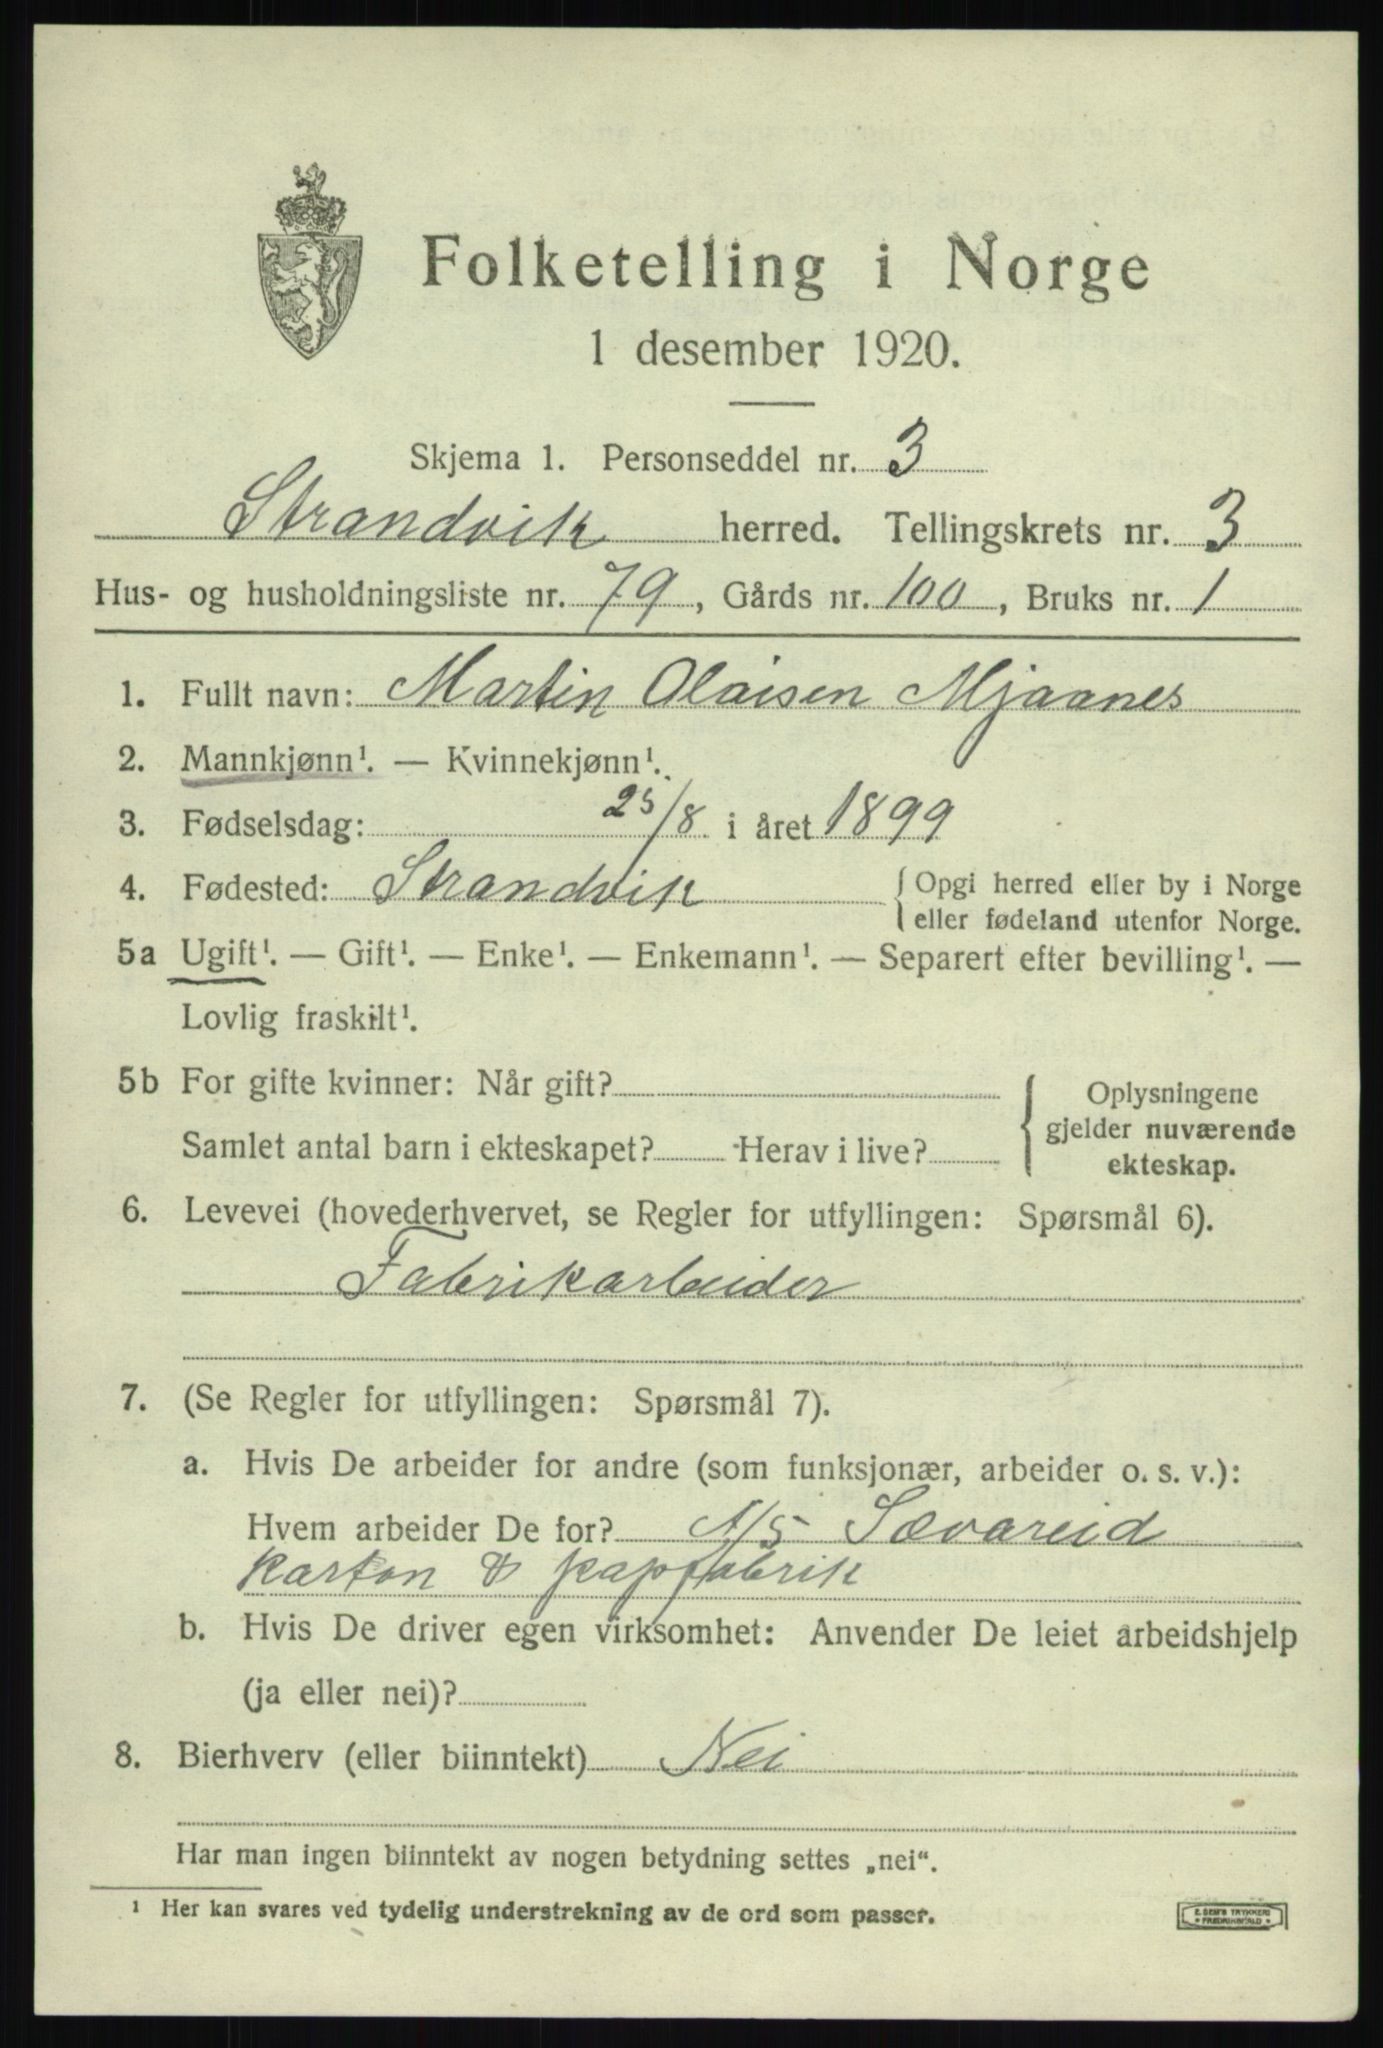 Folketelling i Norge
1 desember 1920.
Skjema 1. Personseddel nr. 3
Strandvik herred. Tellingskrets nr. 3
Hus- og husholdningsliste nr. 79, Gårds nr. 100, Bruks nr. 1
1. Fullt navn: Martin Olaisen Mjaanes
2. Mannkjønn¹. — Kvinnekjønn¹.
3. Fødselsdag: 25/8 i året 1899
4. Fødested: Strandvik { Opgi herred eller by i Norge
eller fødeland utenfor Norge.
5a Ugift¹. — Gift¹. — Enke¹. — Enkemann¹. — Separert efter bevilling¹. —
Lovlig fraskilt¹.
5b For gifte kvinner: Når gift?
Samlet antal barn i ekteskapet? Herav i live?
Oplysningene
gjelder nuværende
ekteskap.
6. Levevei (hovederhvervet, se Regler for utfyllingen: Spørsmål 6).
Fabrikarbeider
7. (Se Regler for utfyllingen: Spørsmål 7).
a. Hvis De arbeider for andre (som funksjonær, arbeider o. s. v.):
Hvem arbeider De for? A/S Sævareid
Karton & papfabrik
b. Hvis De driver egen virksomhet: Anvender De leiet arbeidshjelp
(ja eller nei)?
8. Bierhverv (eller biinntekt) Nei
Har man ingen biinntekt av nogen betydning settes „nei“.
¹ Her kan svares ved tydelig understrekning av de ord som passer.
E. SEM'S TRYKKERI
FREDRIKSHALD